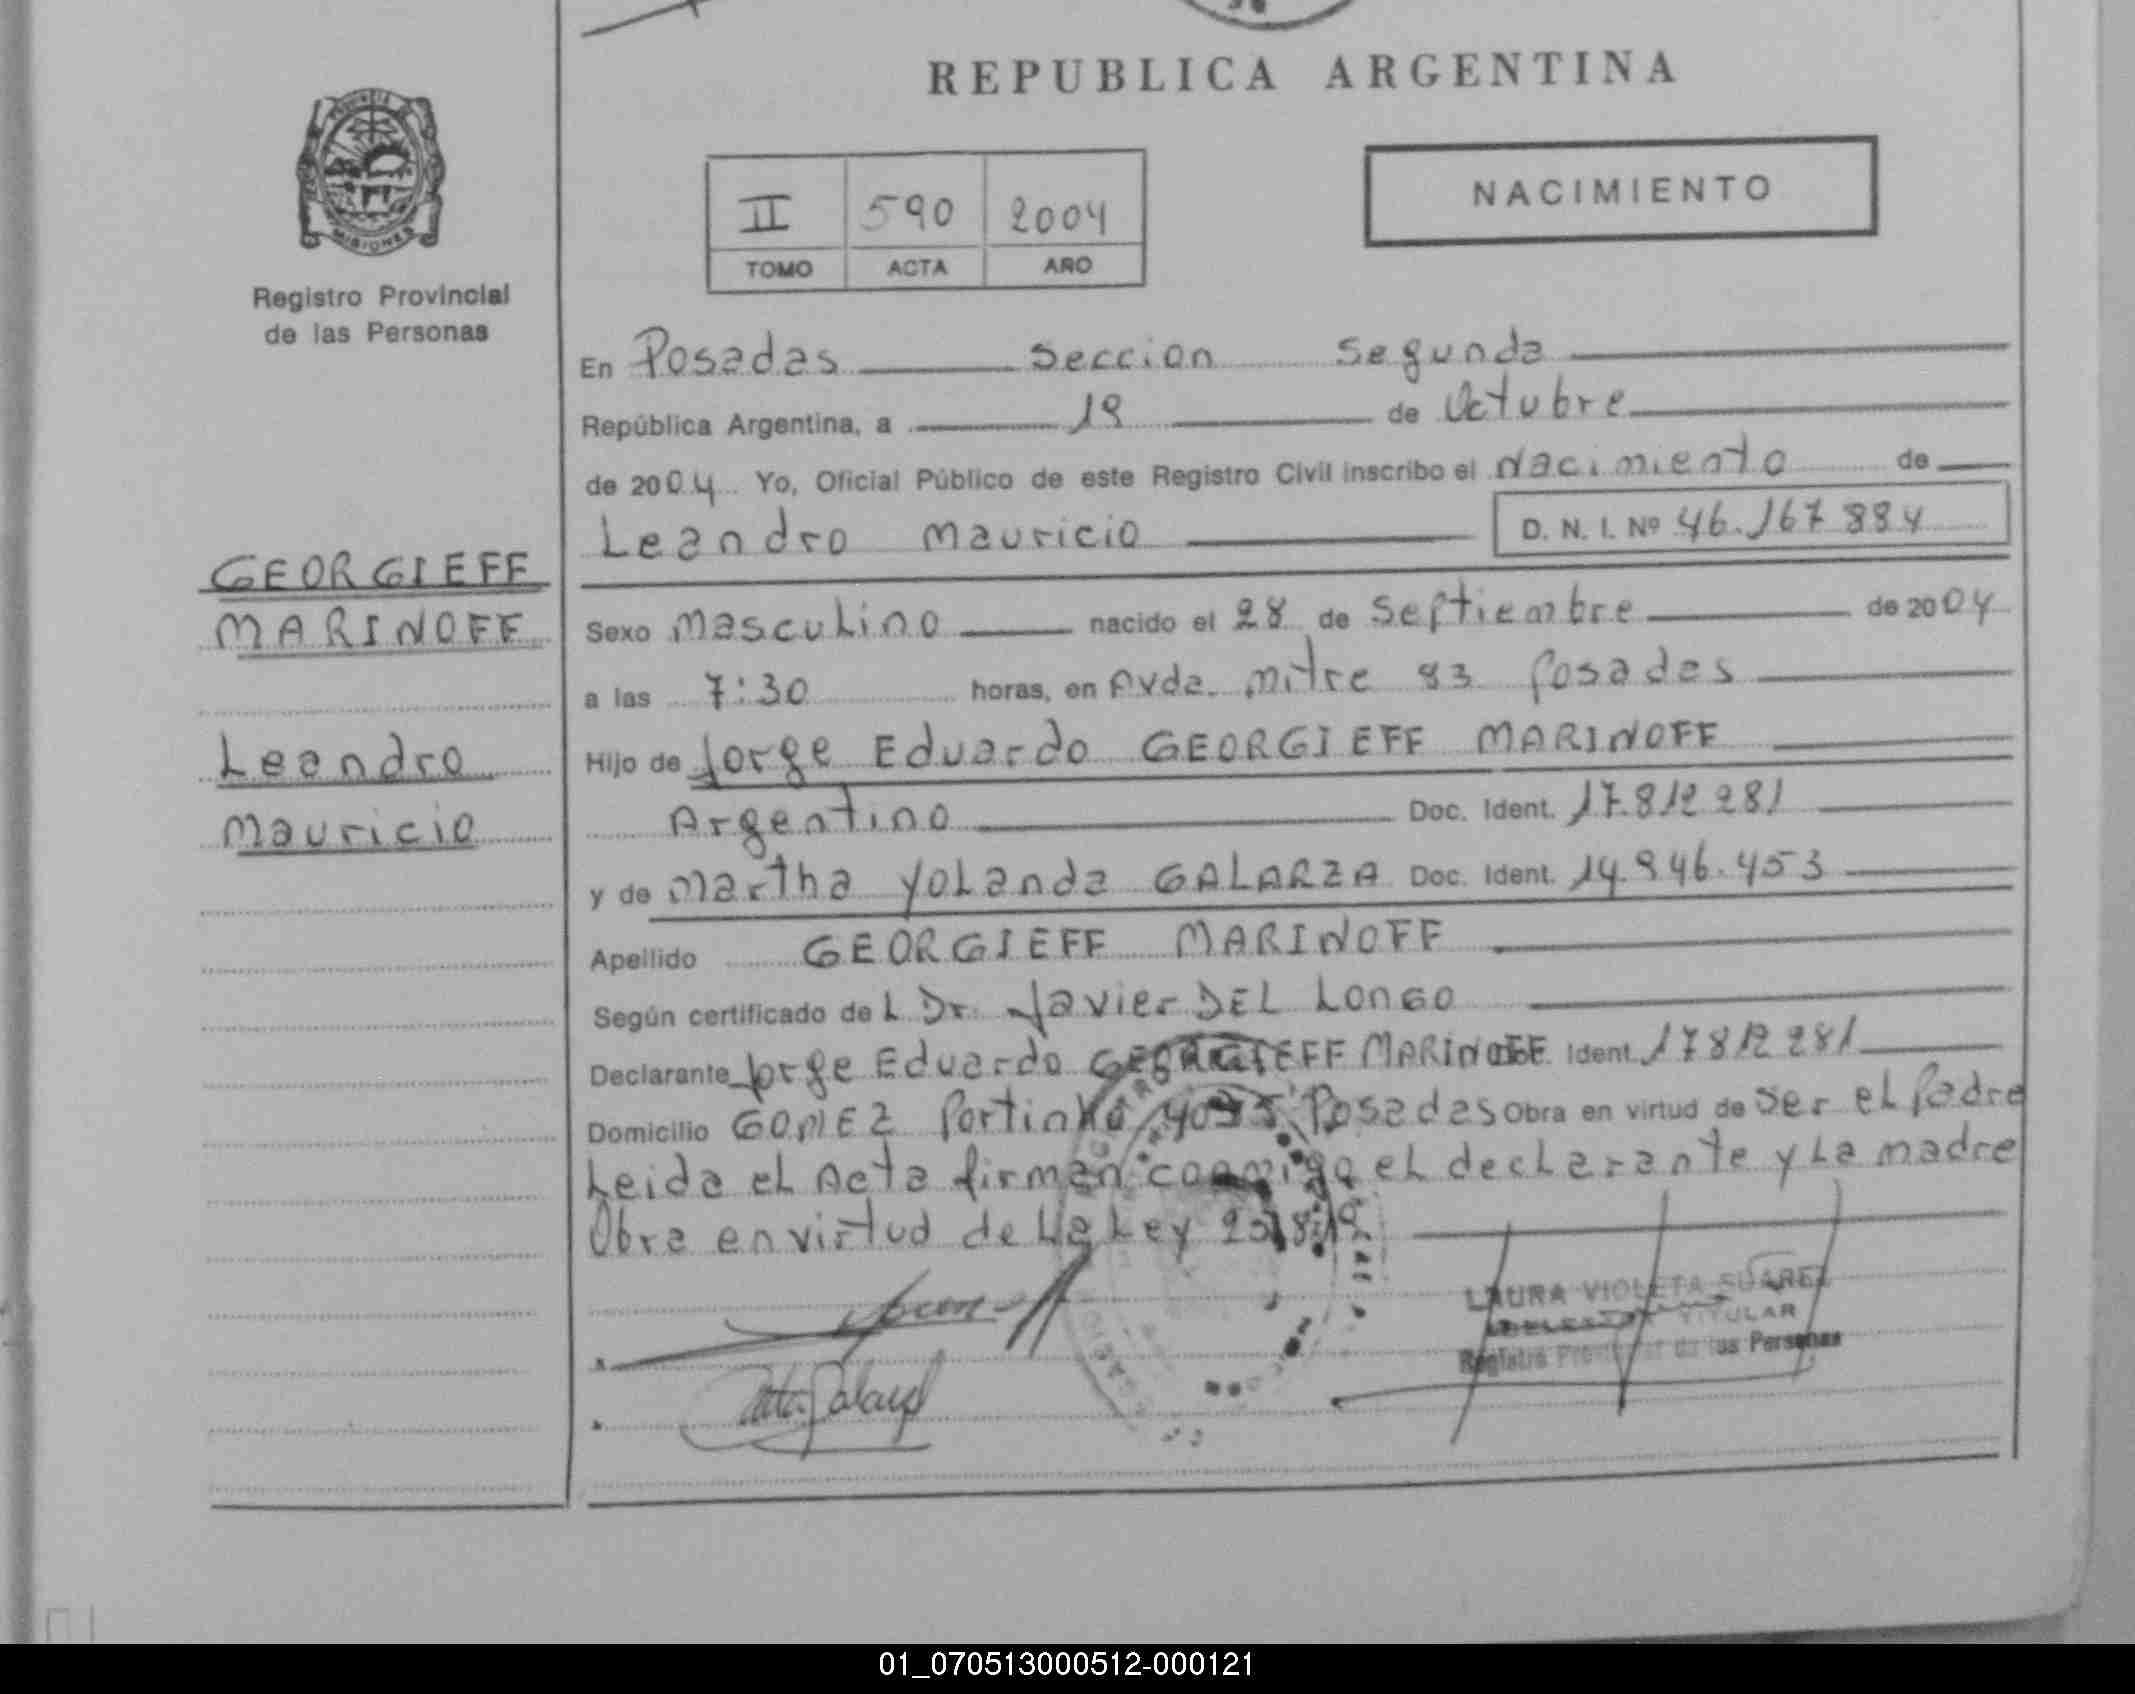 REPUBLICA ARGENTINA
PROVINCIA
MISIONES
Registro Provincial
de las Personas
NACIMIENTO
II 590 2004
TOMO ACTA AÑO
En Posadas Seccion Segunda
República Argentina, a 19 de Octubre
de 2004 Yo, Oficial Público de este Registro Civil inscribo el Nacimiento de
Leandro Mauricio D. N. I. Nº 46.167 884
GEORGIEFF
MARINOFF
Leandro
Mauricio
Sexo Masculino nacido el 28 de Septiembre de 2004
a las 7:30 horas, en Avda. Mitre 83 Posadas
Hijo de Jorge Eduardo GEORGIEFF MARINOFF
Argentino Doc. Ident. 17.812 281
y de Martha Yolanda GALARZA Doc. Ident. 14.946.453
Apellido GEORGIEFF MARINOFF
Según certificado de L Dr. Javier DEL LONGO
Declarante Jorge Eduardo GEORGIEFF MARINOFF Ident. 17812 281
Domicilio GOMEZ Portinho Posadas Obra en virtud de Ser el Padre
Leida el Acta firman conmigo el declarante y La madre
Obra en virtud de La Ley
LAURA VIOLETA SUAREZ
TITULAR
Registro Provincial de las Personas
01_070513000512-000121